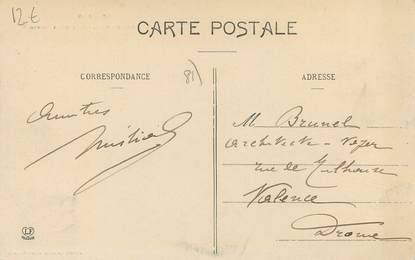 12€
CARTE POSTALE
CORRESPONDANCE
81)
ADRESSE
Amitiés
M. Brunel
Architecte-Voyer
rue de Mulhouse
Valence
Drôme